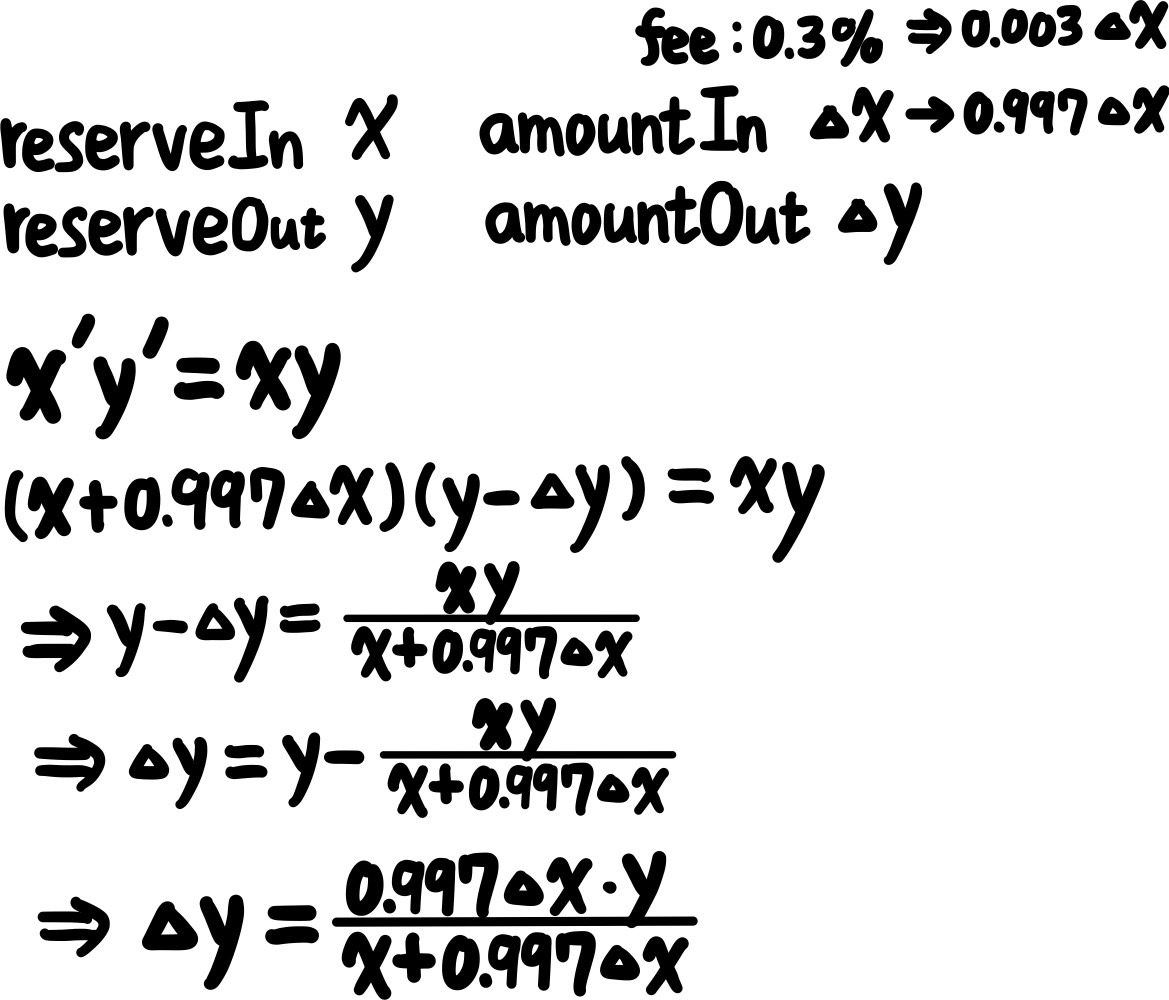 fee : 0.3% ⇒ 0.003 △x
reserveIn x amountIn △x → 0.997 △x
reserveOut y amountOut △y
x'y' = xy
(x+0.997△x)(y-△y) = xy
⇒ y-△y = xy / x+0.997△x
⇒ △y = y - xy / x+0.997△x
⇒ △y = 0.997△x·y / x+0.997△x